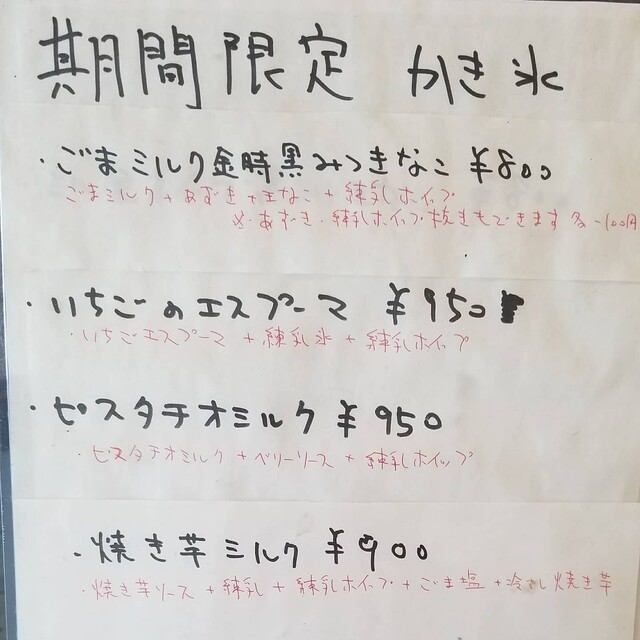 期間限定 かき氷
・ごまミルク金時黒みつきなこ ¥800
ごまミルク+あずき+きなこ+練乳ホイップ
※あずき・練乳ホイップ抜きもできます 各-100円
・いちごのエスプーマ ¥950
・いちごエスプーマ+練乳氷+練乳ホイップ
・ピスタチオミルク ¥950
・ピスタチオミルク+ベリーソース+練乳ホイップ
・焼き芋ミルク ¥900
・焼き芋ソース+練乳+練乳ホイップ+ごま塩+冷やし焼き芋